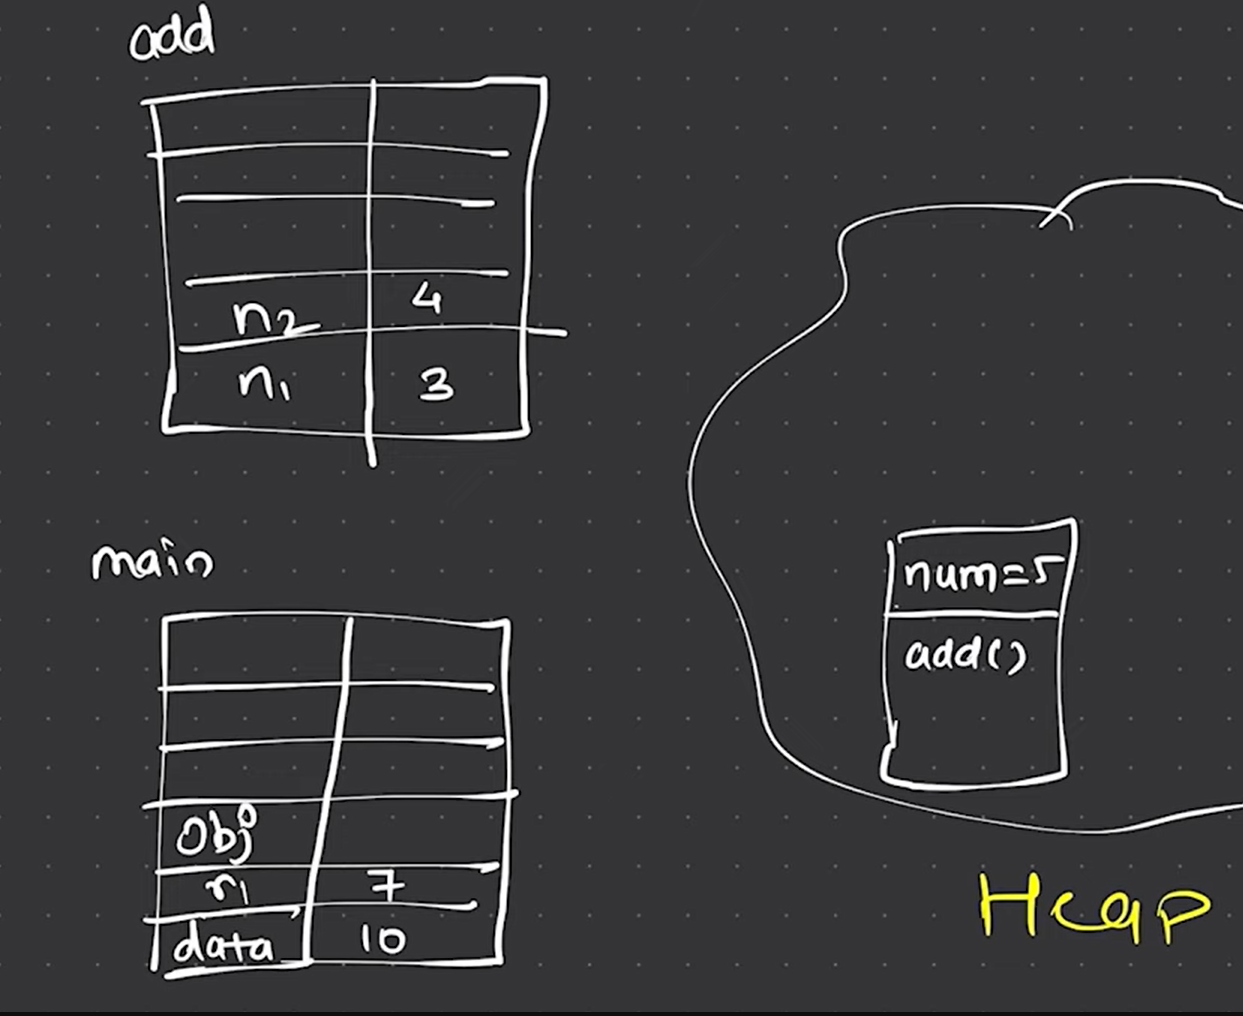 add
n2 4
n1 3
main
obj
r1 7
data 10
num=5
add()
Heap